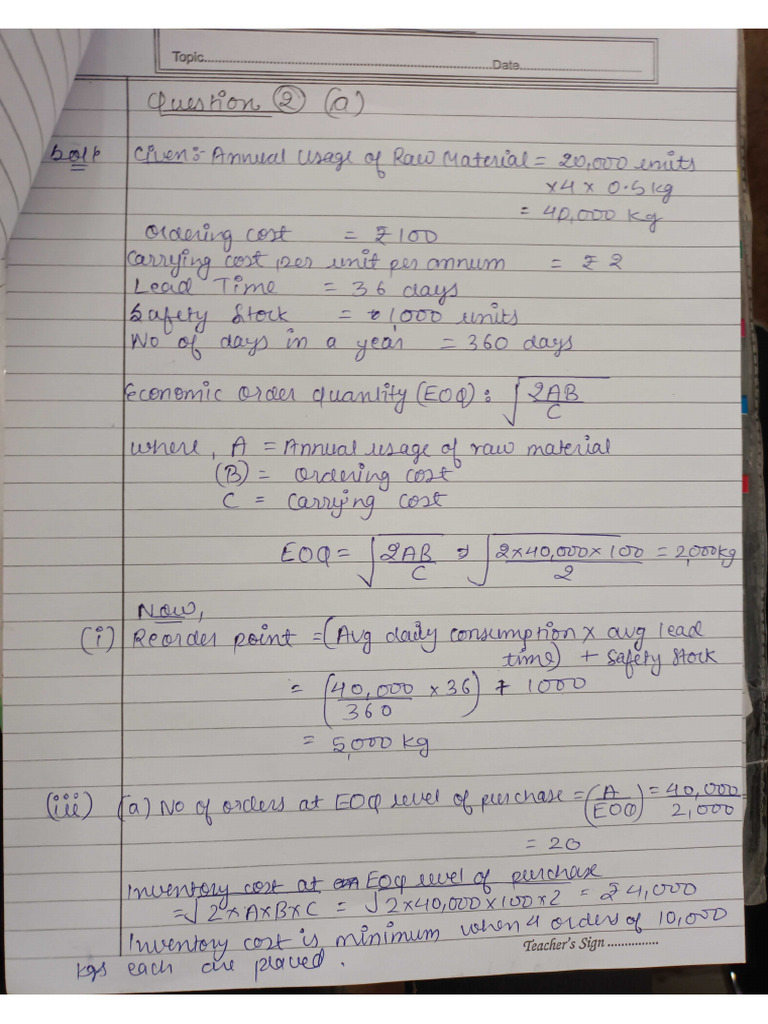 Topic.............................................Date.............................
Question ② (a)
Solⁿ Given:- Annual Usage of Raw Material = 20,000 units
×4 × 0.5kg
= 40,000 kg
Ordering cost = ₹100
Carrying cost per unit per annum = ₹ 2
Lead Time = 36 days
Safety Stock = 1,000 units
No of days in a year = 360 days
Economic order quantity (EOQ): √2AB/C
where, A = Annual usage of raw material
(B) = Ordering cost
C = Carrying cost
EOQ = √2AB/C ⇒ √2×40,000×100/2 = 2,000kg
Now,
(i) Reorder point = (Avg daily consumption × avg lead
time) + Safety Stock
= (40,000/360 × 36) + 1000
= 5,000 kg
(iii) (a) No of orders at EOQ level of purchase = (A/EOQ) = 40,000/2,000
= 20
Inventory cost at EOQ level of purchase
= √2×A×B×C = √2×40,000×100×2 = ₹4,000
Inventory cost is minimum when 4 orders of 10,000
kgs each are placed.
Teacher's Sign ...............